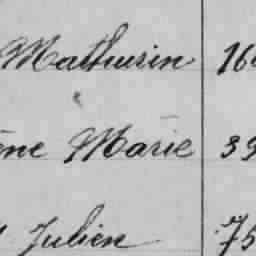 Mathurin 16
Marie 39
Julien 75